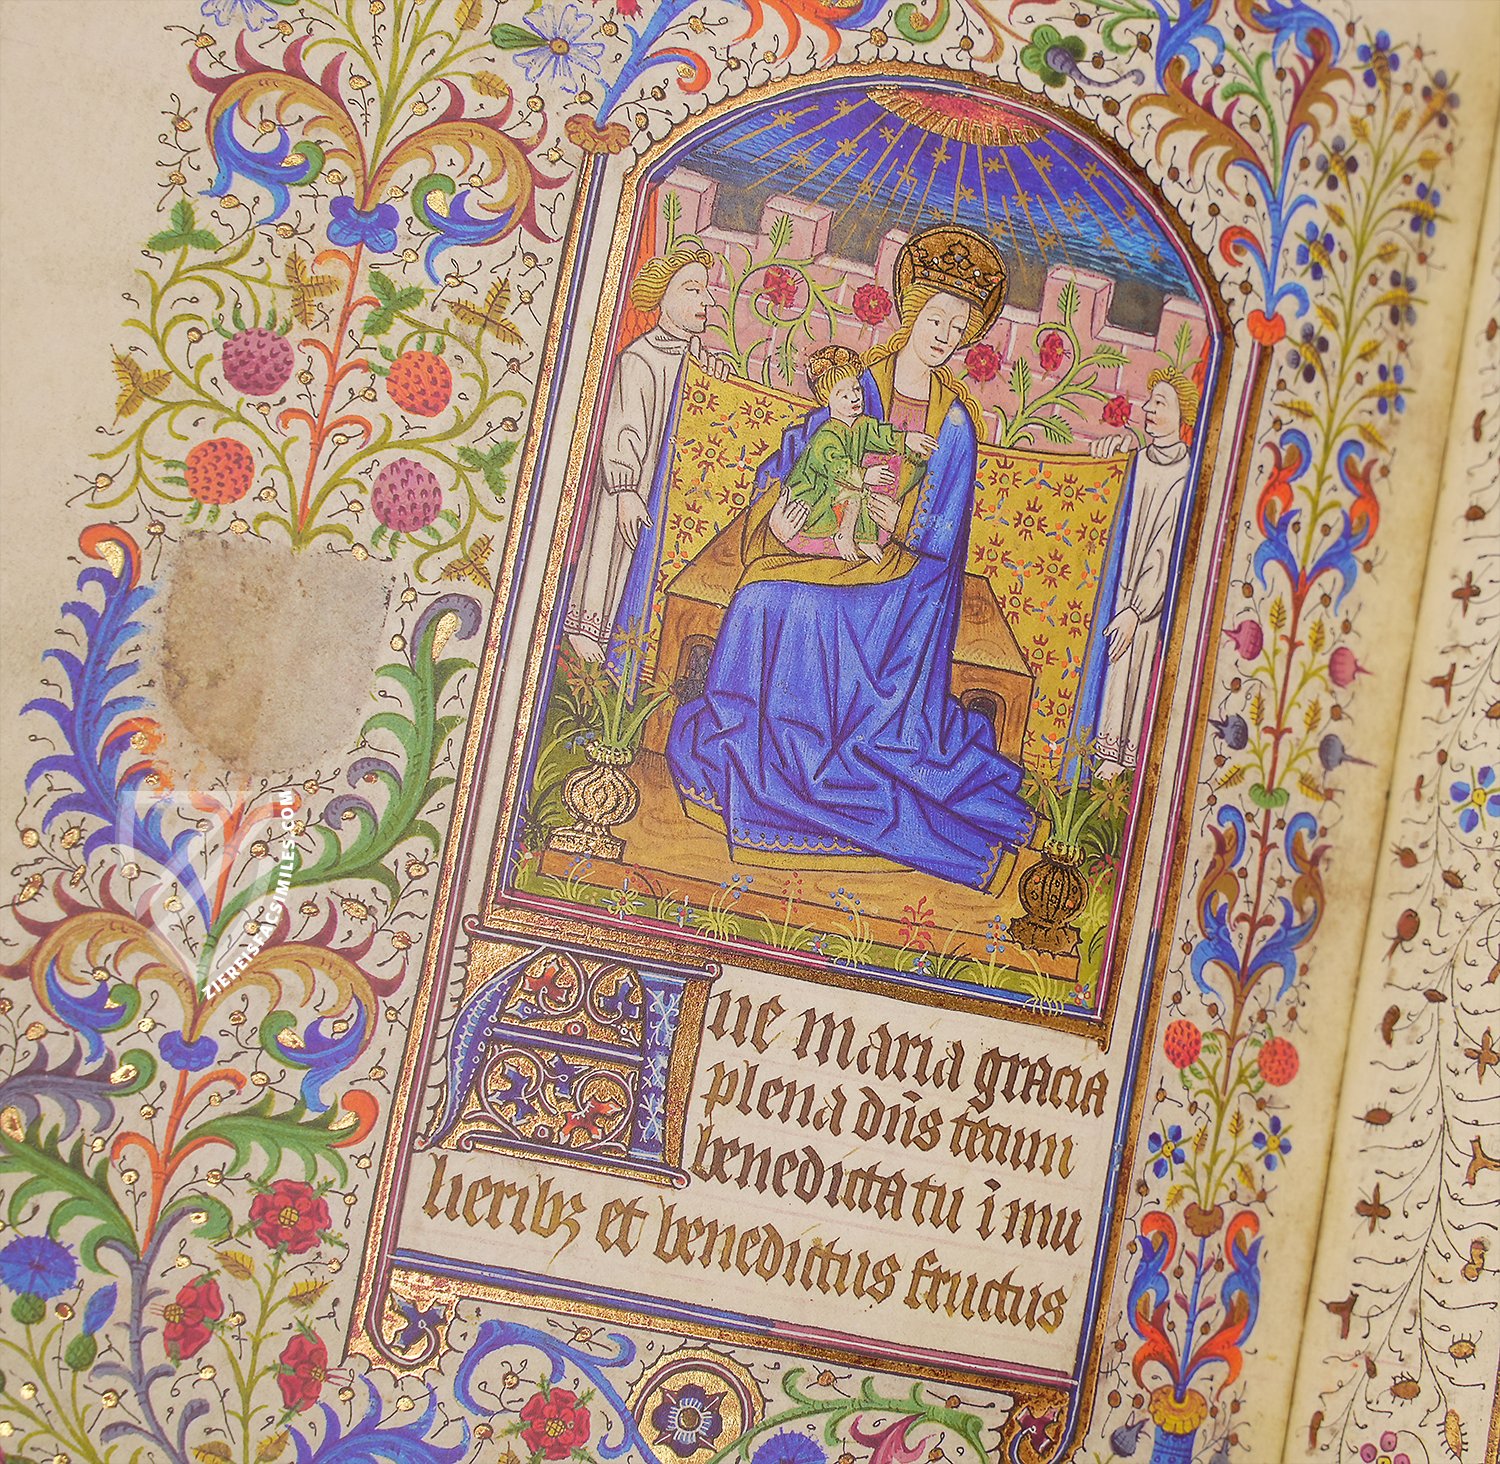 Aue maria gracia
plena dn̄s tecum
benedicta tu ī mu
lieribꝫ et benedictus fructus
ZIEREISFACSIMILES.COM